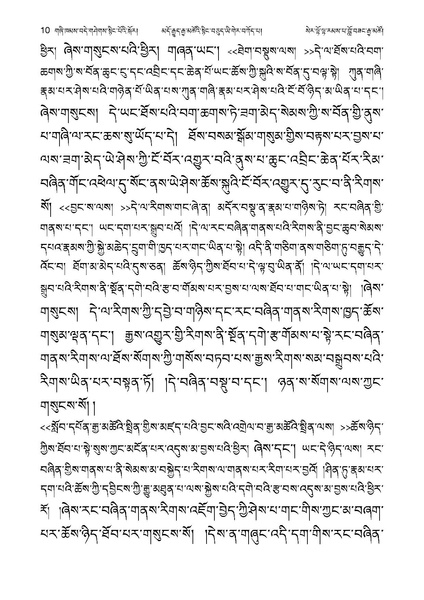 10 གཞི་ཁམས་བདེ་གཤེགས་སྙིང་པོའི་སྐོར། མདོ་རྒྱུད་རྒྱ་མཚོའི་སྙིང་བཅུད་ཡི་གེར་བཀོད་པ། སེར་
ཕྱིར། ཞེས་གསུངས་པའི་ཕྱིར། གཞན་ཡང་། <<ཐེག་བསྡུས་ལས། >>དེ་ལ་ཐོས་པའི་བག་
ཆགས་ཀྱི་ས་བོན་ཆུང་ངུ་དང་འབྲིང་དང་ཆེན་པོ་ཡང་ཆོས་ཀྱི་སྐུའི་ས་བོན་དུ་བལྟ་སྟེ། ཀུན་གཞི་
རྣམ་པར་ཤེས་པའི་གཉེན་པོ་ཡིན་པས་ཀུན་གཞི་རྣམ་པར་ཤེས་པའི་ངོ་བོ་ཉིད་མ་ཡིན་པ་དང་།
ཞེས་གསུངས། དེ་ཡང་ཐོས་པའི་བག་ཆགས་ཏེ་ཟག་མེད་སེམས་ཀྱི་ས་བོན་གྱི་ནུས་
པ་གཞི་ལ་རང་ཆས་སུ་ཡོད་པ་དེ། ཐོས་བསམ་སྒོམ་གསུམ་གྱིས་བརྟས་པར་བྱས་པ་
ལས་ཟག་མེད་ཡེ་ཤེས་ཀྱི་ངོ་བོར་འགྱུར་བའི་ནུས་པ་ཆུང་འབྲིང་ཆེན་པོར་རིམ་
བཞིན་གོང་འཕེལ་དུ་སོང་ནས་ཡེ་ཤེས་ཆོས་སྐུའི་ངོ་བོར་འགྱུར་དུ་རུང་བ་ནི་རིགས་
སོ། <<བྱང་ས་ལས། >>དེ་ལ་རིགས་གང་ཞེ་ན། མདོར་བསྡུ་ན་རྣམ་པ་གཉིས་ཏེ། རང་བཞིན་གྱི་
གནས་པ་དང་། ཡང་དག་པར་སྒྲུབ་པའོ། །དེ་ལ་རང་བཞིན་གནས་པའི་རིགས་ནི་བྱང་ཆུབ་སེམས་
དཔའ་རྣམས་ཀྱི་སྐྱེ་མཆེད་དྲུག་གི་ཁྱད་པར་གང་ཡིན་པ་སྟེ། འདི་ནི་གཅིག་ནས་གཅིག་ཏུ་བརྒྱུད་དེ་
འོང་བ། ཐོག་མ་མེད་པའི་དུས་ཅན། ཆོས་ཉིད་ཀྱིས་ཐོབ་པ་དེ་ལྟ་བུ་ཡིན་ནོ། །དེ་ལ་ཡང་དག་པར་
སྒྲུབ་པའི་རིགས་ནི་སྔོན་དགེ་བའི་རྩ་བ་གོམས་པར་བྱས་པ་ལས་ཐོབ་པ་གང་ཡིན་པ་སྟེ། །ཞེས་
གསུངས། དེ་ལ་རིགས་ཀྱི་དབྱེ་བ་གཉིས་དང་རང་བཞིན་གནས་རིགས་ཁྱད་ཆོས་
གསུམ་ལྡན་དང་། རྒྱས་འགྱུར་གྱི་རིགས་ནི་སྔོན་དགེ་རྩ་གོམས་པ་སྟེ་རང་བཞིན་
གནས་རིགས་ལ་ཐོས་སོགས་ཀྱི་གསོས་བཏབ་པས་རྒྱས་རིགས་སམ་བསྒྲུབས་པའི་
རིགས་ཡིན་པར་བསྟན་ཏོ། །དེ་བཞིན་བསྡུ་བ་དང་། ཉན་ས་སོགས་ལས་ཀྱང་
གསུངས་སོ། །
<<སློབ་དཔོན་རྒྱ་མཚོའི་སྤྲིན་གྱིས་མཛད་པའི་བྱང་སའི་འགྲེལ་བ་རྒྱ་མཚོའི་སྤྲིན་ལས། >>ཆོས་ཉིད་
ཀྱིས་ཐོབ་པ་སྟེ་སུས་ཀྱང་མངོན་པར་འདུས་མ་བྱས་པའི་ཕྱིར། ཞེས་དང་། ཡང་དེ་ཉིད་ལས། རང་
བཞིན་གྱིས་གནས་པ་ནི་སེམས་མ་བསྐྱེད་པ་རིགས་ལ་གནས་པར་རིག་པར་བྱའོ། །ཤིན་ཏུ་རྣམ་པར་
དག་པའི་ཆོས་ཀྱི་དབྱིངས་ཀྱི་རྒྱུ་མཐུན་པ་ལས་སྐྱེས་པའི་དགེ་བའི་རྩ་བས་འདུས་མ་བྱས་པའི་ཕྱིར་
རོ། །ཞེས་རང་བཞིན་གནས་རིགས་འཇོག་བྱེད་ཀྱི་ཤེས་པ་གང་གིས་ཀྱང་མ་བཞག་
པར་ཆོས་ཉིད་ཐོབ་པར་གསུངས་སོ། །དེས་ན་གཞུང་འདི་དག་གིས་རང་བཞིན་